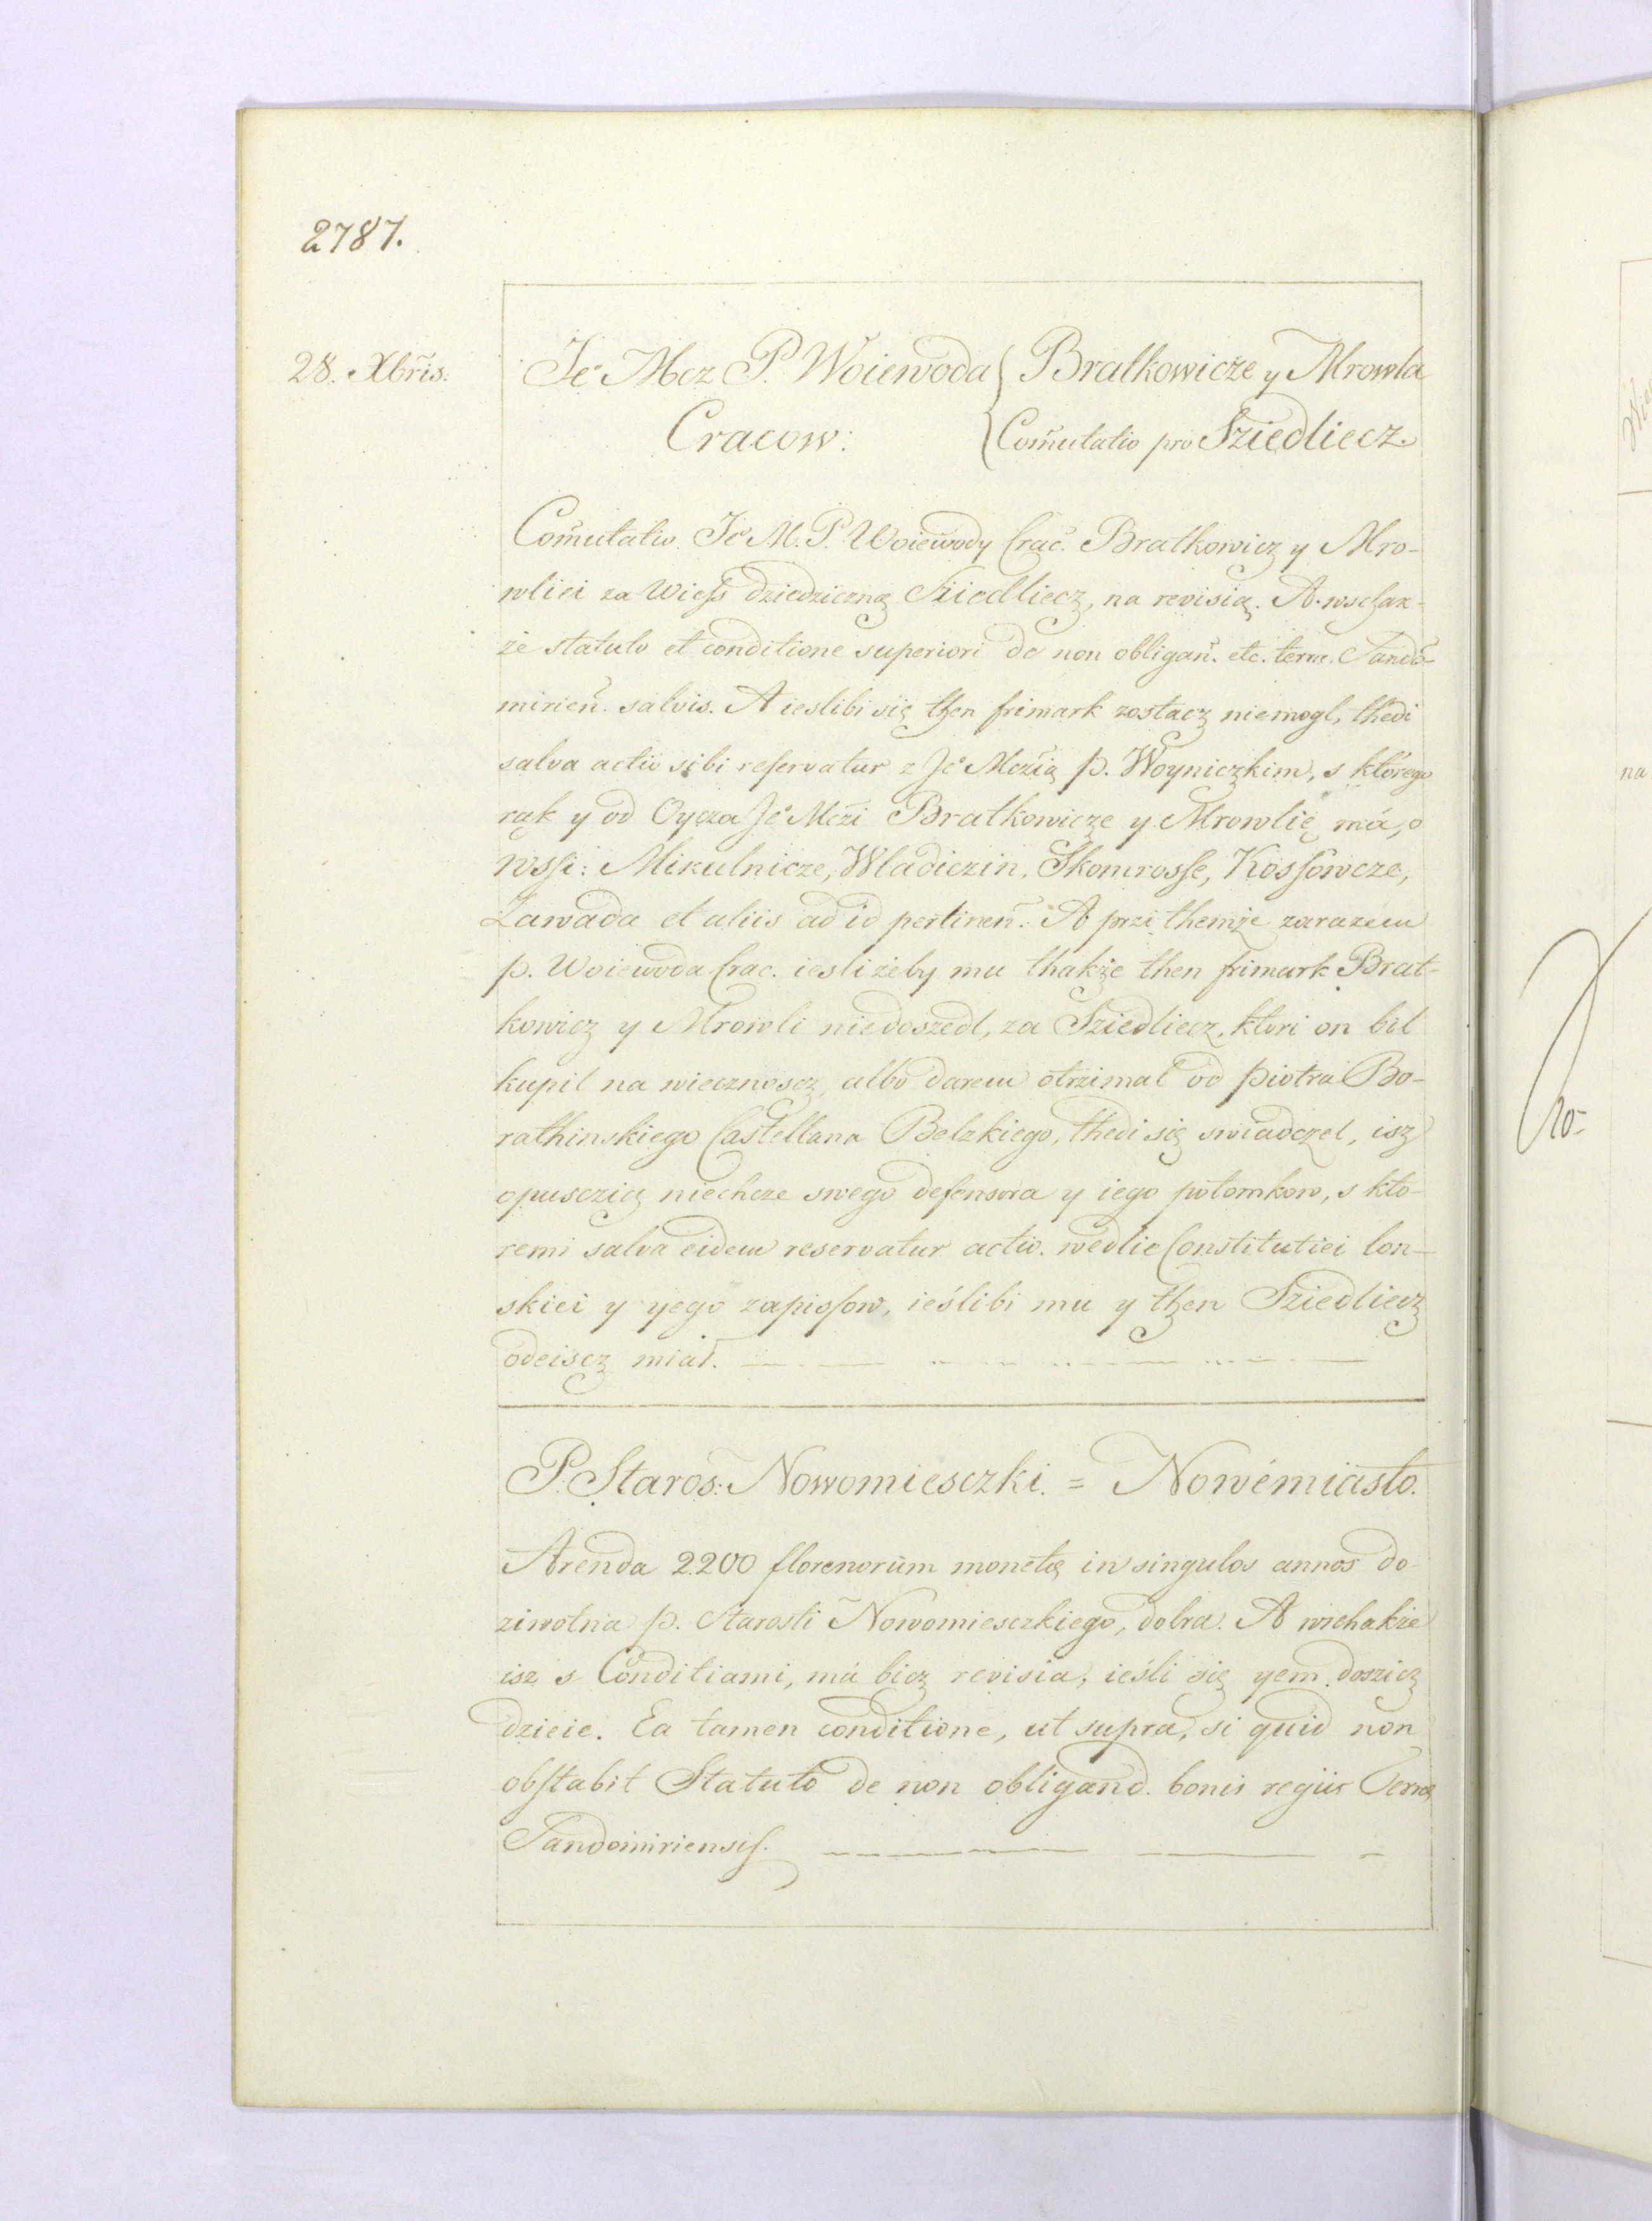 2787.
28. Xbris.
Je° Mcz P. Woiewoda { Bratkowicze y Mrowla
Cracow: { Comutatio pro Sziedliecz.
Comutatio Je° M. P. Woiewody Crac. Bratkowicz y Mro-
wliei za Wiess dziedziczną Sziedliecz, na revisią. A. wschak-
że statuto et conditione superiori de non obligan. etc. terrae Sando-
mirien. salvis. A ieslibi się then frimark zostacz niemogl, thedi
salva actio sibi reservatur z Je° Mczią p. Woyniczkim, s którego
rąk y od Oycza Je° Mczi Bratkowicze y Mrowlię má, o
wssi: Mikulnicze, Wladiczin, Skomrosse, Kossowcze,
Zawada et aliis ad id pertinen. A przi themże zarazem
p. Woiewoda Crac. iesliżeby mu thakże then frimark Brat-
kowicz y Mrowli niedoszedl, za Sziedliecz, ktori on bil
kupil na wiecznoscz, albo darem otrzimal od piotra Bo-
rathinskiego Castellana Belzkiego, thedi się swiadczel, isz
opusczicz niechcze swego defensora y iego potomkow, s kto-
remi salva eidem reservatur actio. wedlie Constitutiei lon-
skiei y yego zapissow, ieślibi mu y then Sziedliecz
odeiscz mial.
P. Staros: Nowomiesczki. = Nowémiásto.
Arenda 2200 florenorum monetæ in singulos annos do-
ziwotna p. Starosti Nowomiesczkiego, dobra. A wschakże
isz s Conditiami, má bicz revisia, ieśli się yem doszicz
dzieie. Ea tamen conditione, ut supra, si quid non
obstabit Statuto de non obligand. bonis regiis Terræ
Sandomiriensis.
na